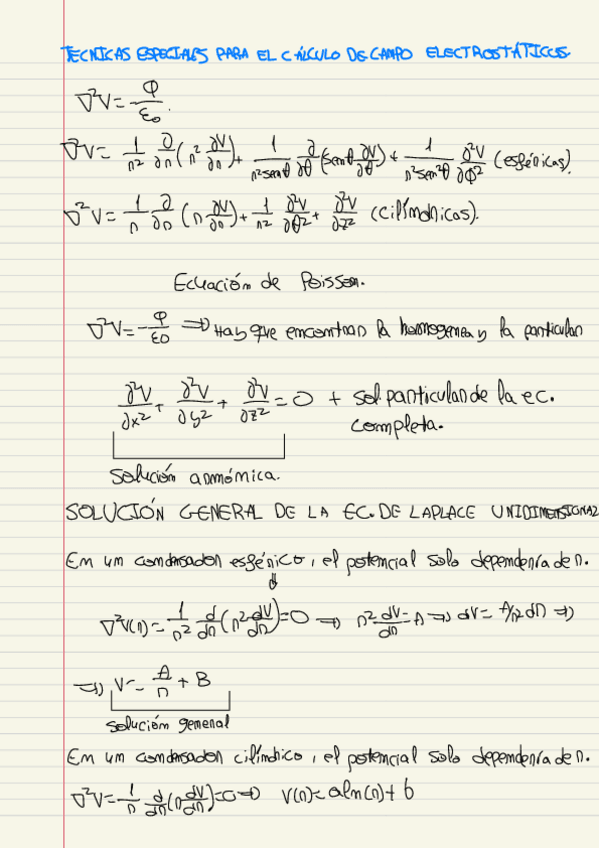 TECNICAS ESPECIALES PARA EL CÁLCULO DE CAMPO ELECTROSTÁTICOS
∇²V = φ/ε₀.
∇²V = 1/r² ∂/∂r (r² ∂V/∂r) + 1/r²senθ ∂/∂θ (senθ ∂V/∂θ) + 1/r²sen²θ ∂²V/∂Φ² (esféricas).
∇²V = 1/r ∂/∂r (r ∂V/∂r) + 1/r² ∂²V/∂θ² + ∂²V/∂z² (cilíndricas).
Ecuación de Poisson.
∇²V = -φ/ε₀ ⇒ Hay que encontrar la homogenea y la particular
∂²V/∂x² + ∂²V/∂y² + ∂²V/∂z² = 0 + sol particular de la ec.
completa.
Solución armónica.
SOLUCIÓN GENERAL DE LA EC. DE LAPLACE UNIDIMENSIONAL
En un condensador esférico, el potencial solo dependería de r.
⇓
∇²V(r) = 1/r² d/dr (r² dV/dr) = 0 ⇒ r² dV/dr = A ⇒ dV = A/r² dr ⇒
⇒ V = -A/r + B
Solución general
En un condensador cilíndrico, el potencial solo dependería de r.
∇²V = 1/r d/dr (r dV/dr) = 0 ⇒ V(r) = a ln(r) + b